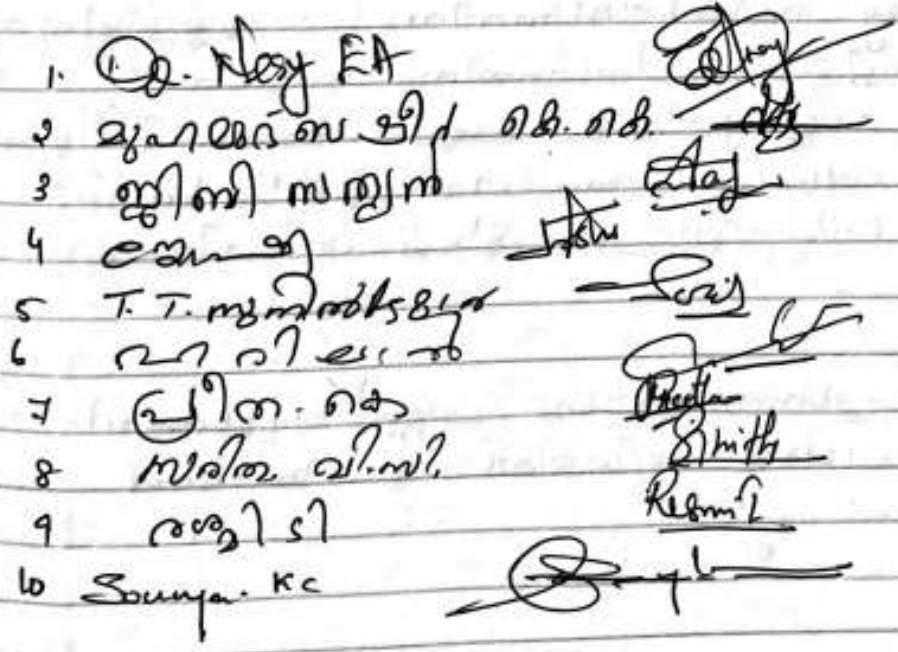 1. Dr. Nesy EA
2 മുഹമ്മദ് ബഷീർ കെ.കെ.
3 ജിബി സത്യൻ
4 ജയശ്രീ
5 T. T. സുനിൽകുമാർ
6 ഹരിലാൽ
7 പ്രീത. കെ Preetha
8 സരിത. വി.സി. Smith
9 രശ്മി ടി Resmi T
10 Soumya. KC